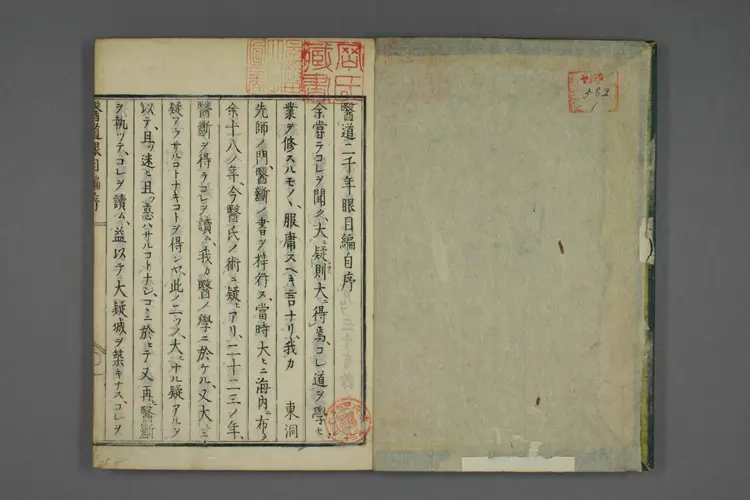 醫道二千年眼目編自序
余嘗テコレヲ聞ク、大ニ疑則大ニ得焉コレ道ヲ學ヒ
業ヲ修スルモノヽ、服膺スヘキ言ナリ、我カ 東洞
先師ノ門、醫斷ノ書ヲ梓行ス、當時大ヒニ海内ニ布ク
余十八ノ年、今醫氏ノ術ニ疑ヒアリ、二十二三ノ年、
醫斷ヲ得テコレヲ讀ム、我カ醫ノ學ニ於ケル、又大ニ
疑フラサルコトナキコトヲ得ンヤ、此ノ二ツノ大ヒナル疑アルヲ
以テ、且ツ迷ヒ且ツ惑ハサルコトナシ、コヽニ於ヒテ又再ヒ醫斷
ヲ執ツテ、コレヲ讀ム、益以テ大疑城ヲ築キナス、コレヲ
醫道眼目編序